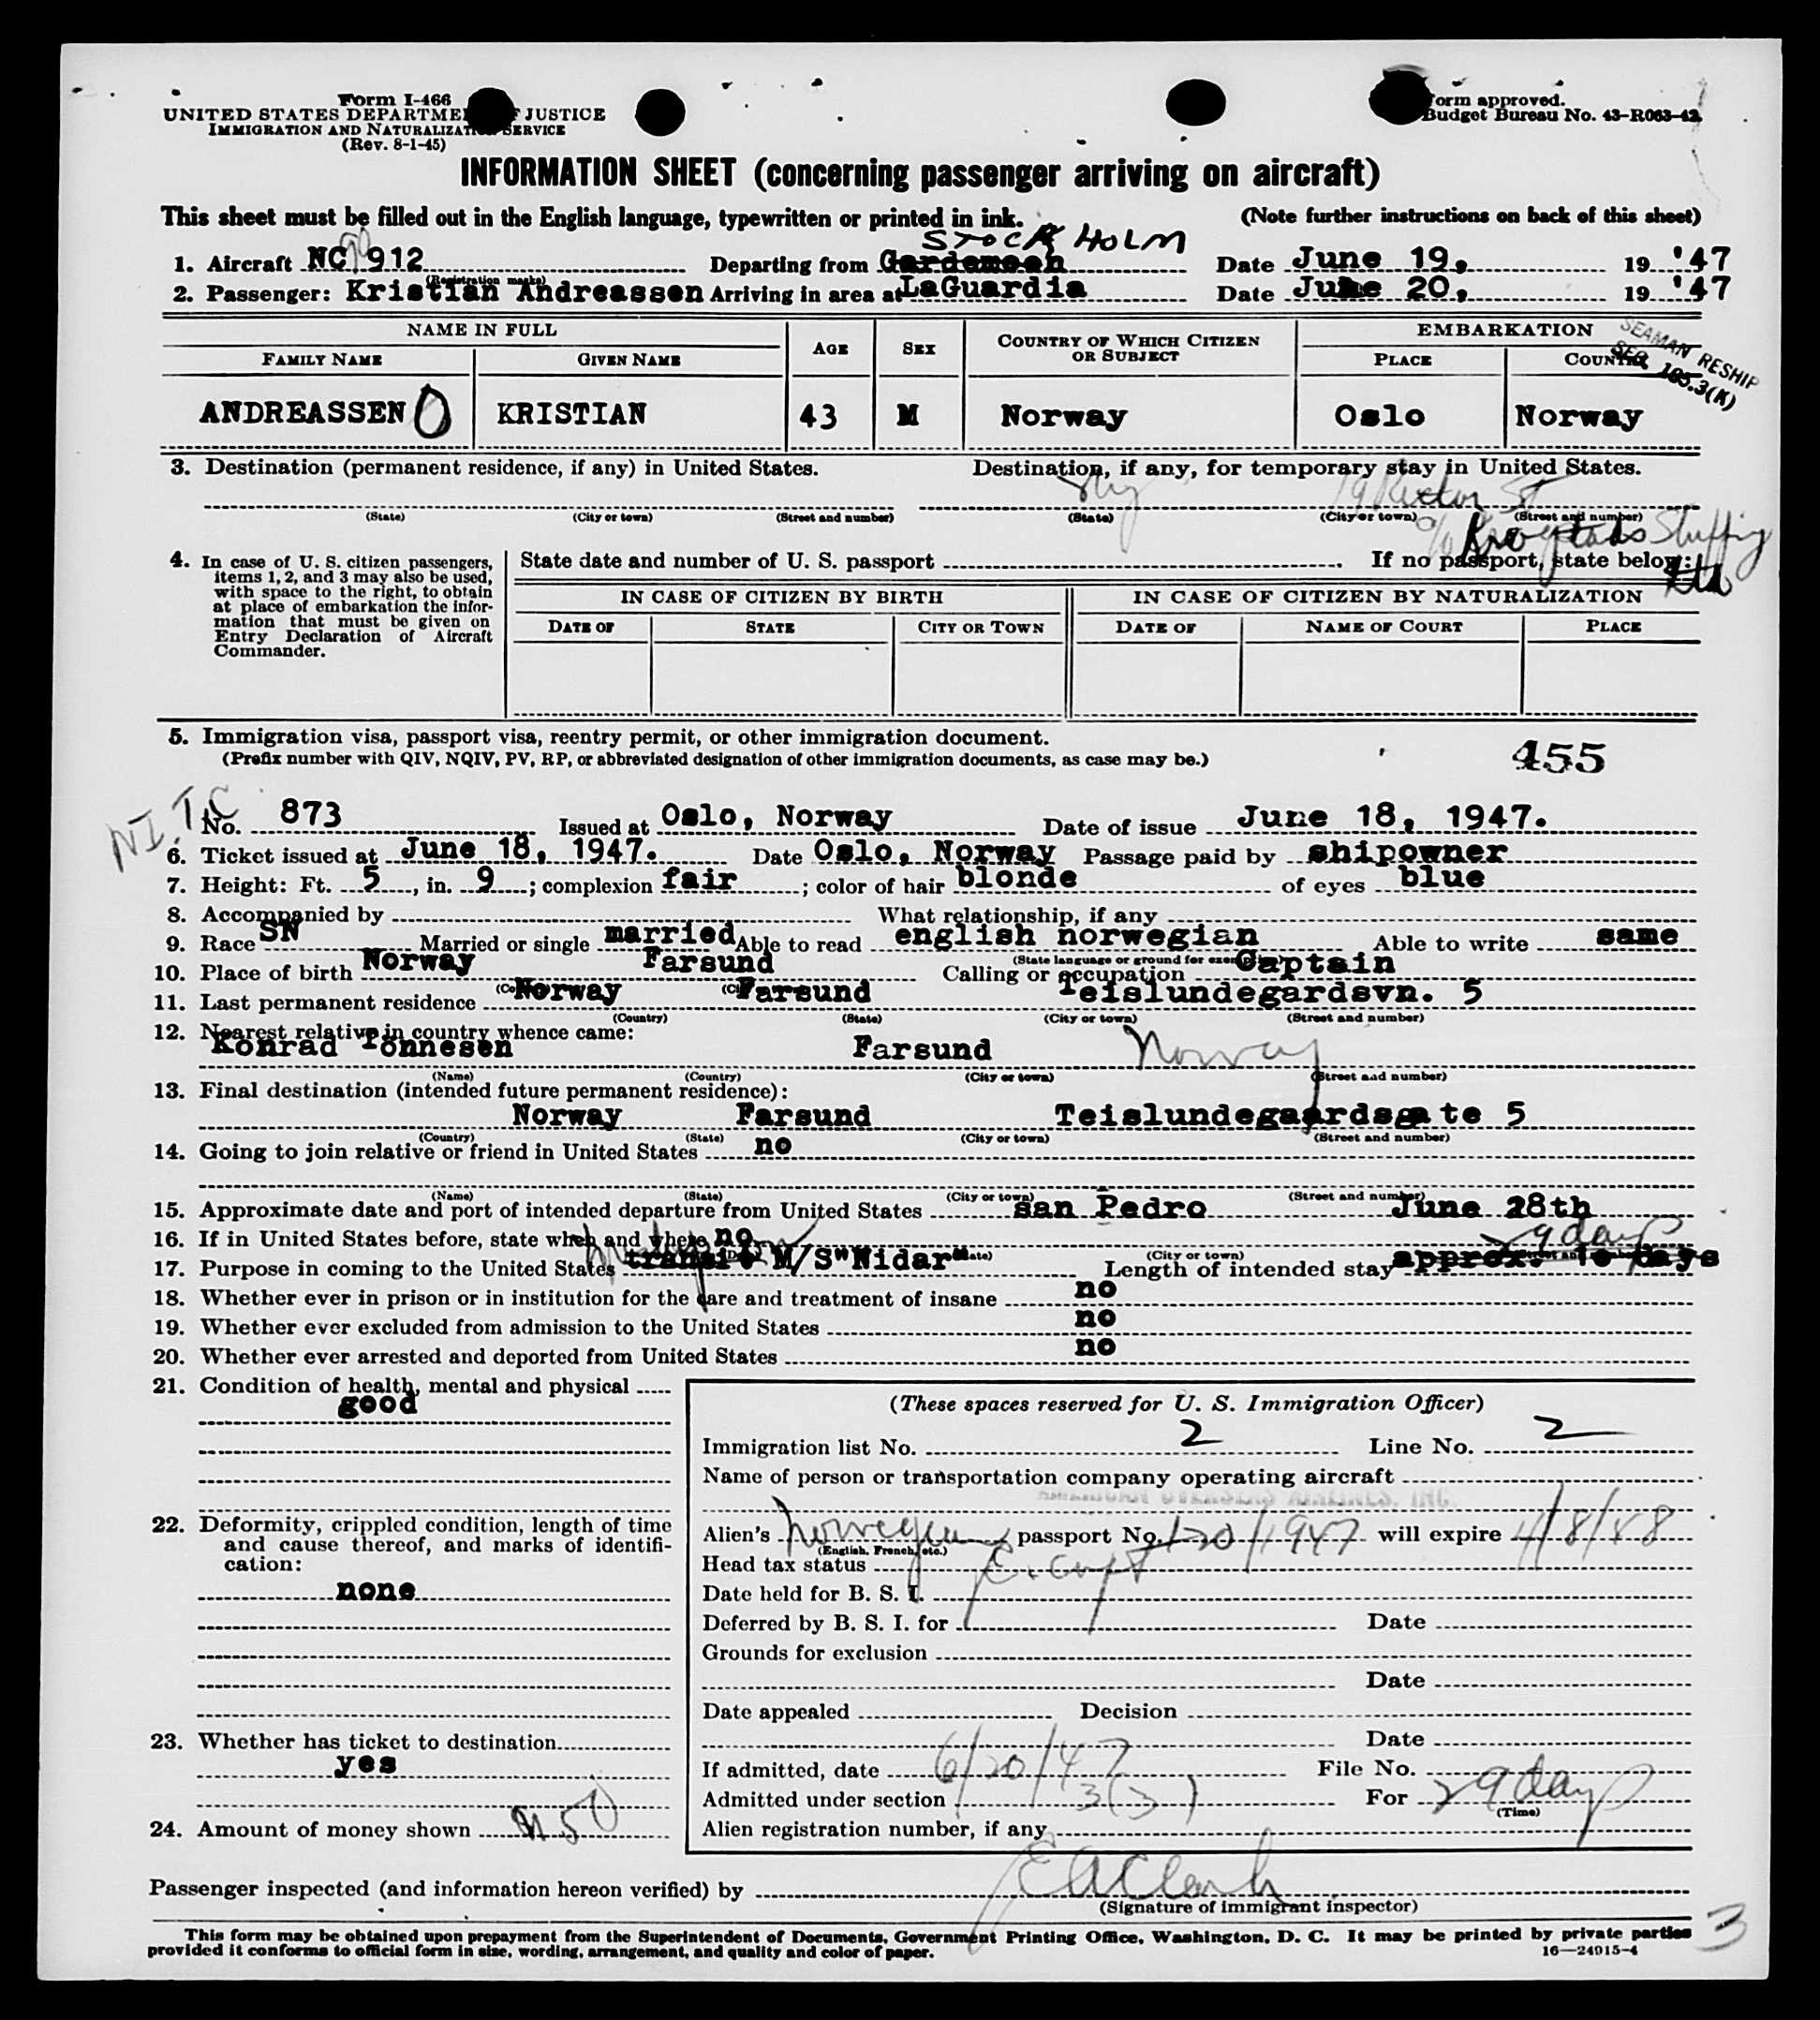 Form I-466
UNITED STATES DEPARTMENT OF JUSTICE
IMMIGRATION AND NATURALIZATION SERVICE
(Rev. 8-1-45)
Form approved.
Budget Bureau No. 43-R063-42
INFORMATION SHEET (concerning passenger arriving on aircraft)
This sheet must be filled out in the English language, typewritten or printed in ink. (Note further instructions on back of this sheet)
STOCKHOLM
1. Aircraft NC 912 Departing from Gardemoen Date June 19, 19 '47
(Registration marks)
2. Passenger: Kristian Andreassen Arriving in area at LaGuardia Date June 20, 19 '47
NAME IN FULL AGE SEX COUNTRY OF WHICH CITIZEN OR SUBJECT EMBARKATION
FAMILY NAME GIVEN NAME PLACE COUNTRY
SEAMAN RESHIP
SEC. 105.3(K)
ANDREASSEN KRISTIAN 43 M Norway Oslo Norway
3. Destination (permanent residence, if any) in United States. Destination, if any, for temporary stay in United States.
19 Rector St
(State) (City or town) (Street and number) (State) (City or town) (Street and number)
4. In case of U. S. citizen passengers, items 1, 2, and 3 may also be used, with space to the right, to obtain at place of embarkation the information that must be given on Entry Declaration of Aircraft Commander.
State date and number of U. S. passport . If no passport, state below:
IN CASE OF CITIZEN BY BIRTH IN CASE OF CITIZEN BY NATURALIZATION
DATE OF STATE CITY OR TOWN DATE OF NAME OF COURT PLACE
5. Immigration visa, passport visa, reentry permit, or other immigration document.
(Prefix number with QIV, NQIV, PV, RP, or abbreviated designation of other immigration documents, as case may be.)
455
NI.TC
No. 873 Issued at Oslo, Norway Date of issue June 18, 1947.
6. Ticket issued at June 18, 1947. Date Oslo, Norway Passage paid by shipowner
7. Height: Ft. 5, in. 9; complexion fair; color of hair blonde of eyes blue
8. Accompanied by What relationship, if any
9. Race SN Married or single married Able to read english norwegian Able to write same
10. Place of birth Norway Farsund Calling or occupation Captain
11. Last permanent residence Norway Farsund Teislundegardsvn. 5
(Country) (State) (City or town) (Street and number)
12. Nearest relative in country whence came:
Konrad Tonnesen Farsund Norway
(Name) (Country) (City or town) (Street and number)
13. Final destination (intended future permanent residence):
Norway Farsund Teislundegaardsgate 5
(Country) (State) (City or town) (Street and number)
14. Going to join relative or friend in United States no
(Name) (State) (City or town) (Street and number)
15. Approximate date and port of intended departure from United States san Pedro June 28th
16. If in United States before, state when and where no
29 days
17. Purpose in coming to the United States transit M/S "Nidar" Length of intended stay approx. 10 days
18. Whether ever in prison or in institution for the care and treatment of insane no
19. Whether ever excluded from admission to the United States no
20. Whether ever arrested and deported from United States no
21. Condition of health, mental and physical
good
22. Deformity, crippled condition, length of time and cause thereof, and marks of identification:
none
23. Whether has ticket to destination
yes
24. Amount of money shown 50
(These spaces reserved for U. S. Immigration Officer)
Immigration list No. 2 Line No. 2
Name of person or transportation company operating aircraft
Alien's Norwegian passport No. 120/1947 will expire 4/8/48
(English, French, etc.)
Head tax status Exempt
Date held for B. S. I.
Deferred by B. S. I. for Date
Grounds for exclusion
Date
Date appealed Decision
Date
If admitted, date 6/20/47 File No.
Admitted under section 3(3) For 29 days
(Time)
Alien registration number, if any
Passenger inspected (and information hereon verified) by E A Clark
(Signature of immigrant inspector)
This form may be obtained upon prepayment from the Superintendent of Documents, Government Printing Office, Washington, D. C. It may be printed by private parties
provided it conforms to official form in size, wording, arrangement, and quality and color of paper. 16—24915-4
3